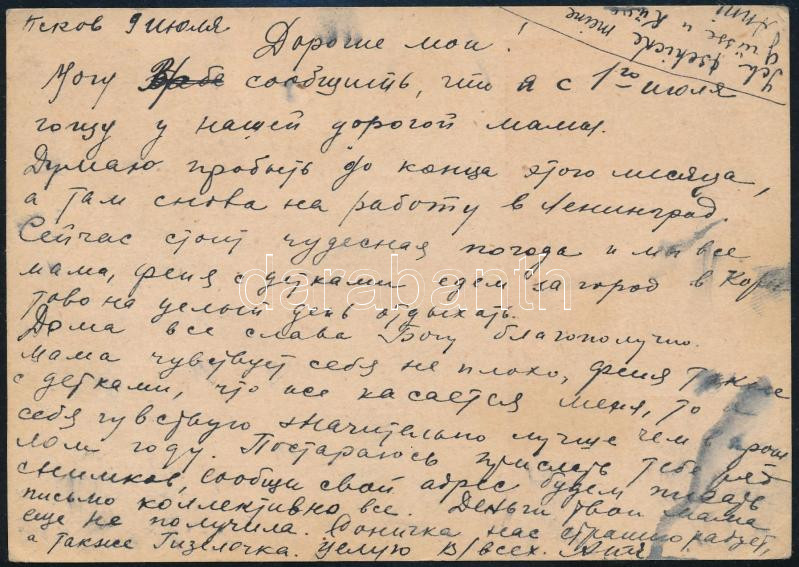 Псков 9 июля
Дорогие мои!
Хочу сообщить, что я с 1го июля
гощу у нашей дорогой мамы.
Думаю пробыть до конца этого месяца,
а там снова на работу в Ленинград.
Сейчас стоит чудесная погода и мы все
мама, феня с детками едем за город в Коры-
тово на целый день отдыхать.
Дома все слава Богу благополучно.
мама чувствует себя не плохо, феня также
с детками, что же касается меня, то я
себя чувствую значительно лучше чем в прош
лом году. Постараюсь прислать тебе
снимков, сообщи свой адрес будем писать
письмо коллективно все. Деньги твои мама
еще не получила. Боничка нас страшно радует,
а также Гизелочка. Целую В/всех. Ани
Ich schicke meine
Grüsse u Küsse
Anni
darabanth